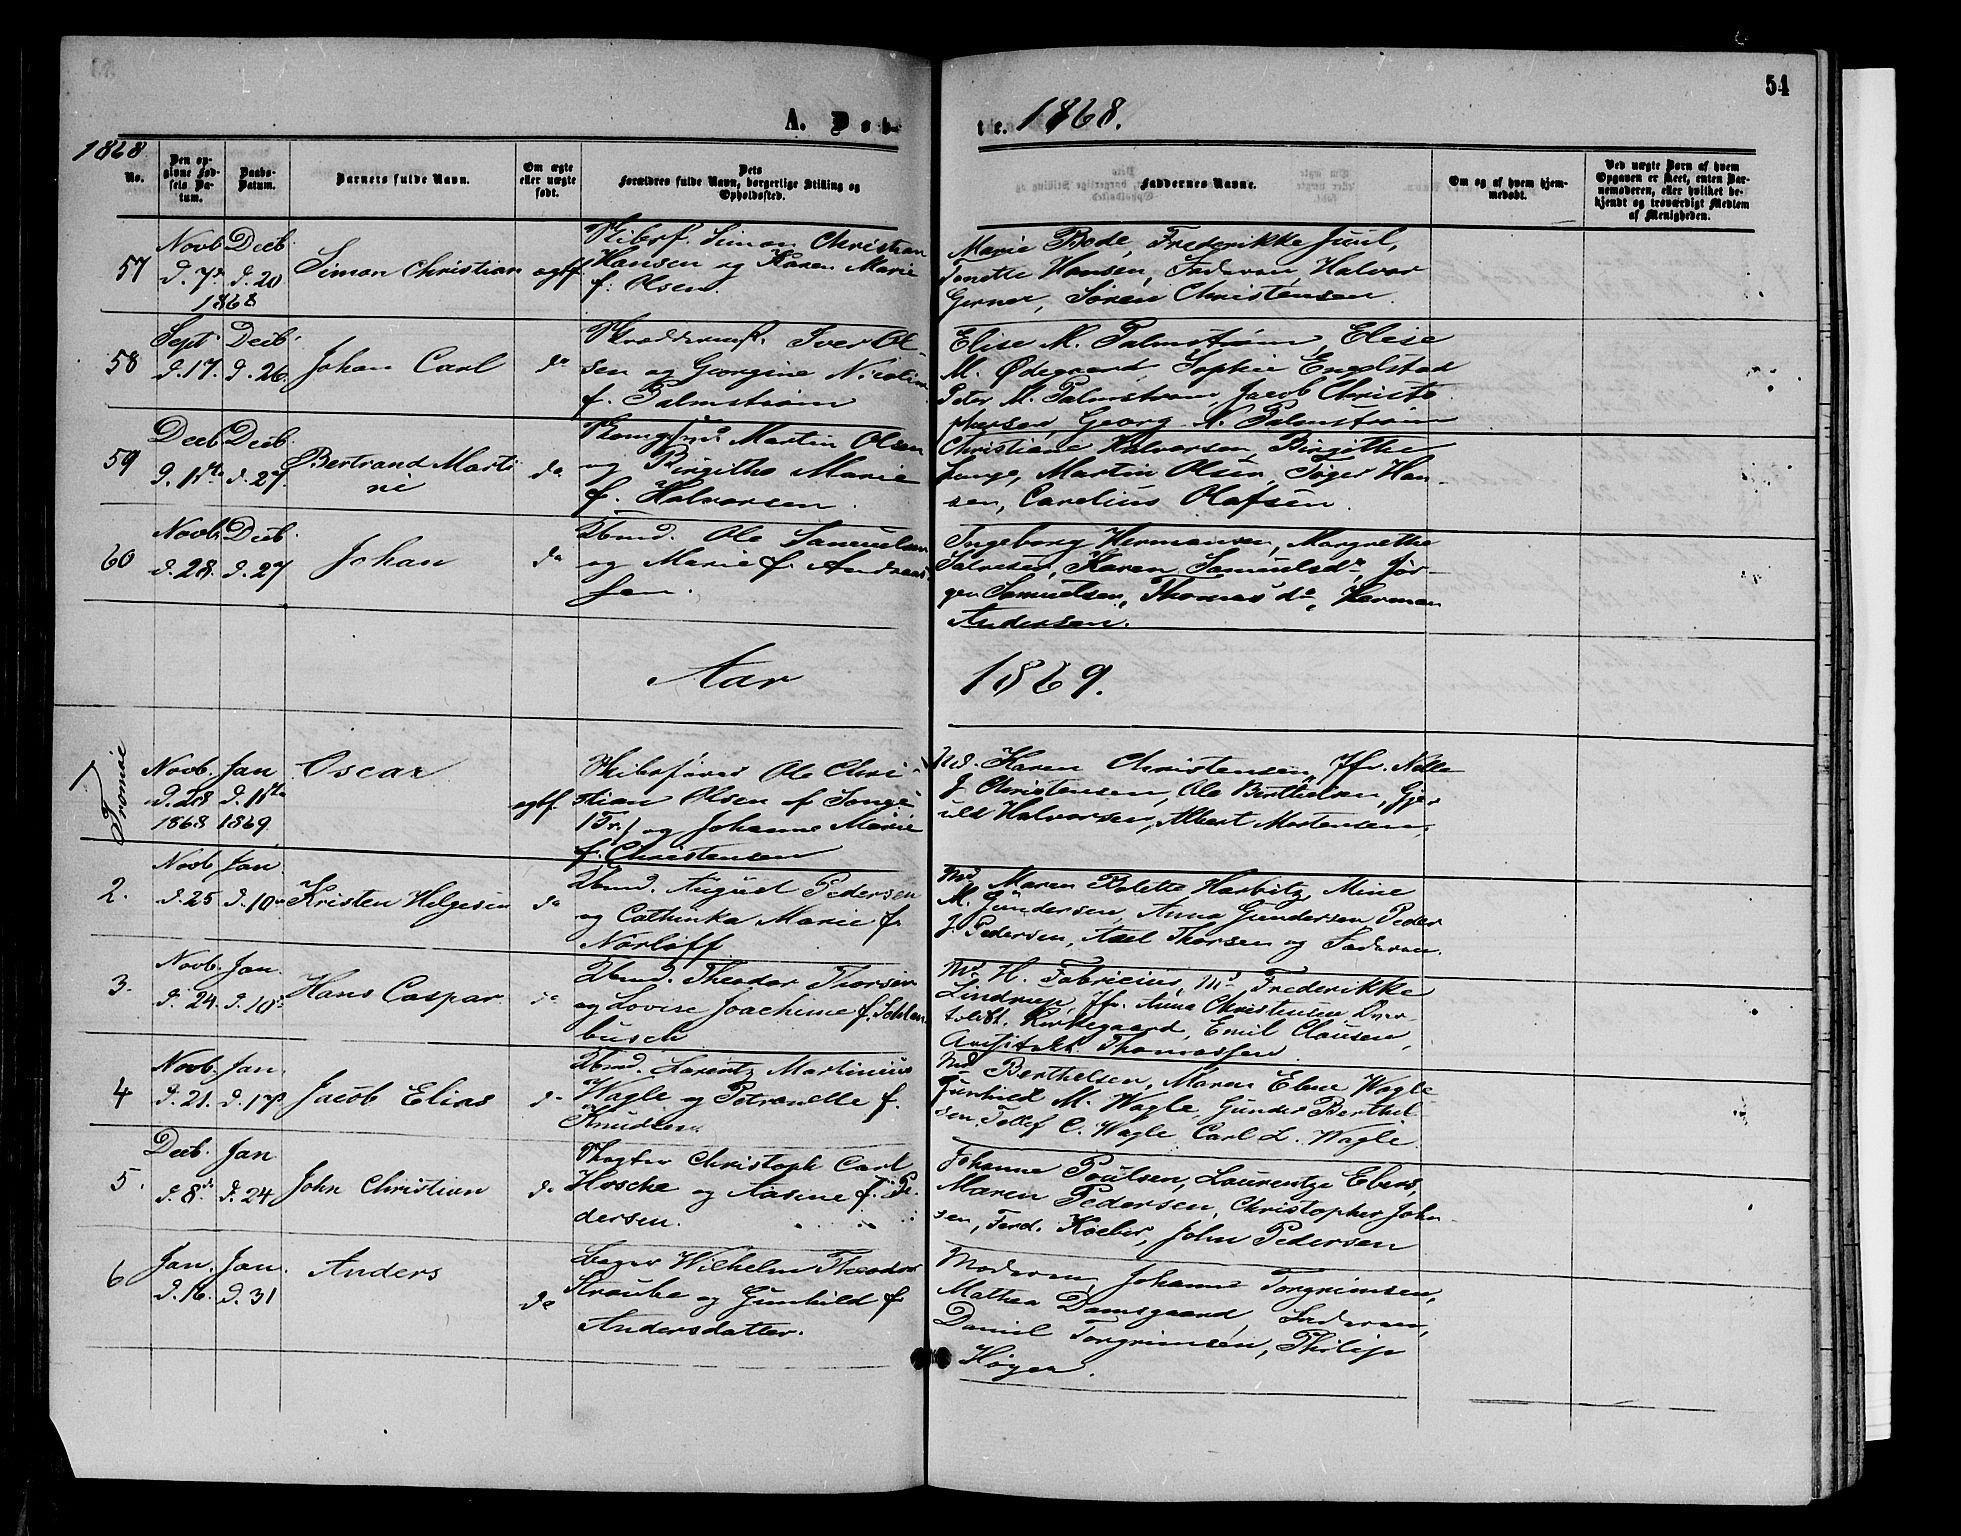 54
A. Døb-
te. 1868.
1868
No.
Den op-
givne Fød-
sels Da-
tum.
Daabs-
Datum.
Barnets fulde Navn.
Om ægte
eller uægte
født.
Dets
Forældres fulde Navn, borgerlige Stilling og
Opholdssted.
Faddernes Navne.
Om og af hvem hjem-
medøbt.
Ved uægte Børn af hvem
Opgaven er skeet, enten Bar-
nemoderen, eller hvilket be-
kjendt og troværdigt Medlem
af Menigheden.
57
Novb. Decb.
d. 7de d. 20
1868
Simon Christian
ægtf.
Skibsf. Simon Christian
Hansen og Karen Marie
f. Olsen.
Marie Bode, Frederikke Juul,
Tonette Hansen, Faderen, Halvor
Gerner, Søren Christensen.
58
Sept. Decb.
d. 17. d. 26.
Johan Carl
do
Skræddermst. Iver Ol-
sen og Georgine Nicoline
f. Palmstrøm
Elise M. Palmstrøm, Elise
M. Ødegaard, Sophie Engelstad
Peter M. Palmstrøm, Jacob Christo
phersen, Georg N. Palmstrøm
59
Decb. Decb.
d. 27.
Bertrand Marti
ni
do
Martin Olsen
og Birgithe Marie
f. Halvorsen.
Christiane Halvorsen, Birgithe
Lange, Martin Olsen, Tøger Han-
sen, Carelius Olafsen.
60
Novb. Decb.
d. 28. d. 27
Johan
do
Tbmd. Ole Samuelsen
og Marie f. Andreas-
sen.
Ingeborg Hermansen, Margrethe
Salvesen, Karen Samuelsdr, Jør-
gen Samuelsen, Thomas do, Herman
Andersen.
Aar 1869.
Tromøe
1
Novb. Jan
d. 28
1868 1869
Oscar
ægtf.
Skibsfører Ole Chri-
stian Olsen af Songe
(Tr.) og Johanne Marie
f. Christensen
Md. Karen Christensen, Jfr. Nille
J. Christensen, Ole Berthelsen, Gjer
uld Halvorsen, Albert Mortensen.
2.
Novb. Jan.
d. 25 d. 10de
Kristen Helgesen
do
Tbmd. August Pedersen
og Cathinka Marie f.
Norløff
Md. Maren Bolette Harbitz, Mine
M. Gundersen, Anna Gundersen, Peder
J. Pedersen, Axel Thorsen og Faderen.
3.
Novb. Jan.
d. 24. d. 10de
Hans Caspar
do
Tbmd. Theodor Thorsen
og Lovise Joachime f. Schlan-
busch
Md. H. Fabricius, Md. Frederikke
Lindrup, Jfr. Anna Christensen, Over-
toldbt. Kirkegaard, Emil Clausen,
Thomassen.
4
Novb. Jan.
d. 21. d. 17de
Jacob Elias
do
Tbmd. Lorentz Martinius
Wagle og Petronelle f.
Knudsen.
Md. Berthelsen, Maren Elene Wagle
Gunhild M. Wagle, Gunder Berthel
sen, Tellef C. Wagle, Carl L. Wagle.
5.
Decb. Jan
d. 8de d. 24
John Christian
do
Slagter Christoph Carl
Hosche og Aasine f. Pe-
dersen.
Johanne Poulsen, Laurentze Ebers,
Maren Pedersen, Christopher John-
sen, Ferd. Koeber, John Pedersen
6
Jan. Jan.
d. 16. d. 31
Anders
do
Bager Wilhelm Theodor
Straube og Gunhild f.
Andersdatter.
Moderen, Johanne Torgrimsen,
Mathea Damsgaard, Faderen,
Daniel Torgrimsen, Philip
Høyer.